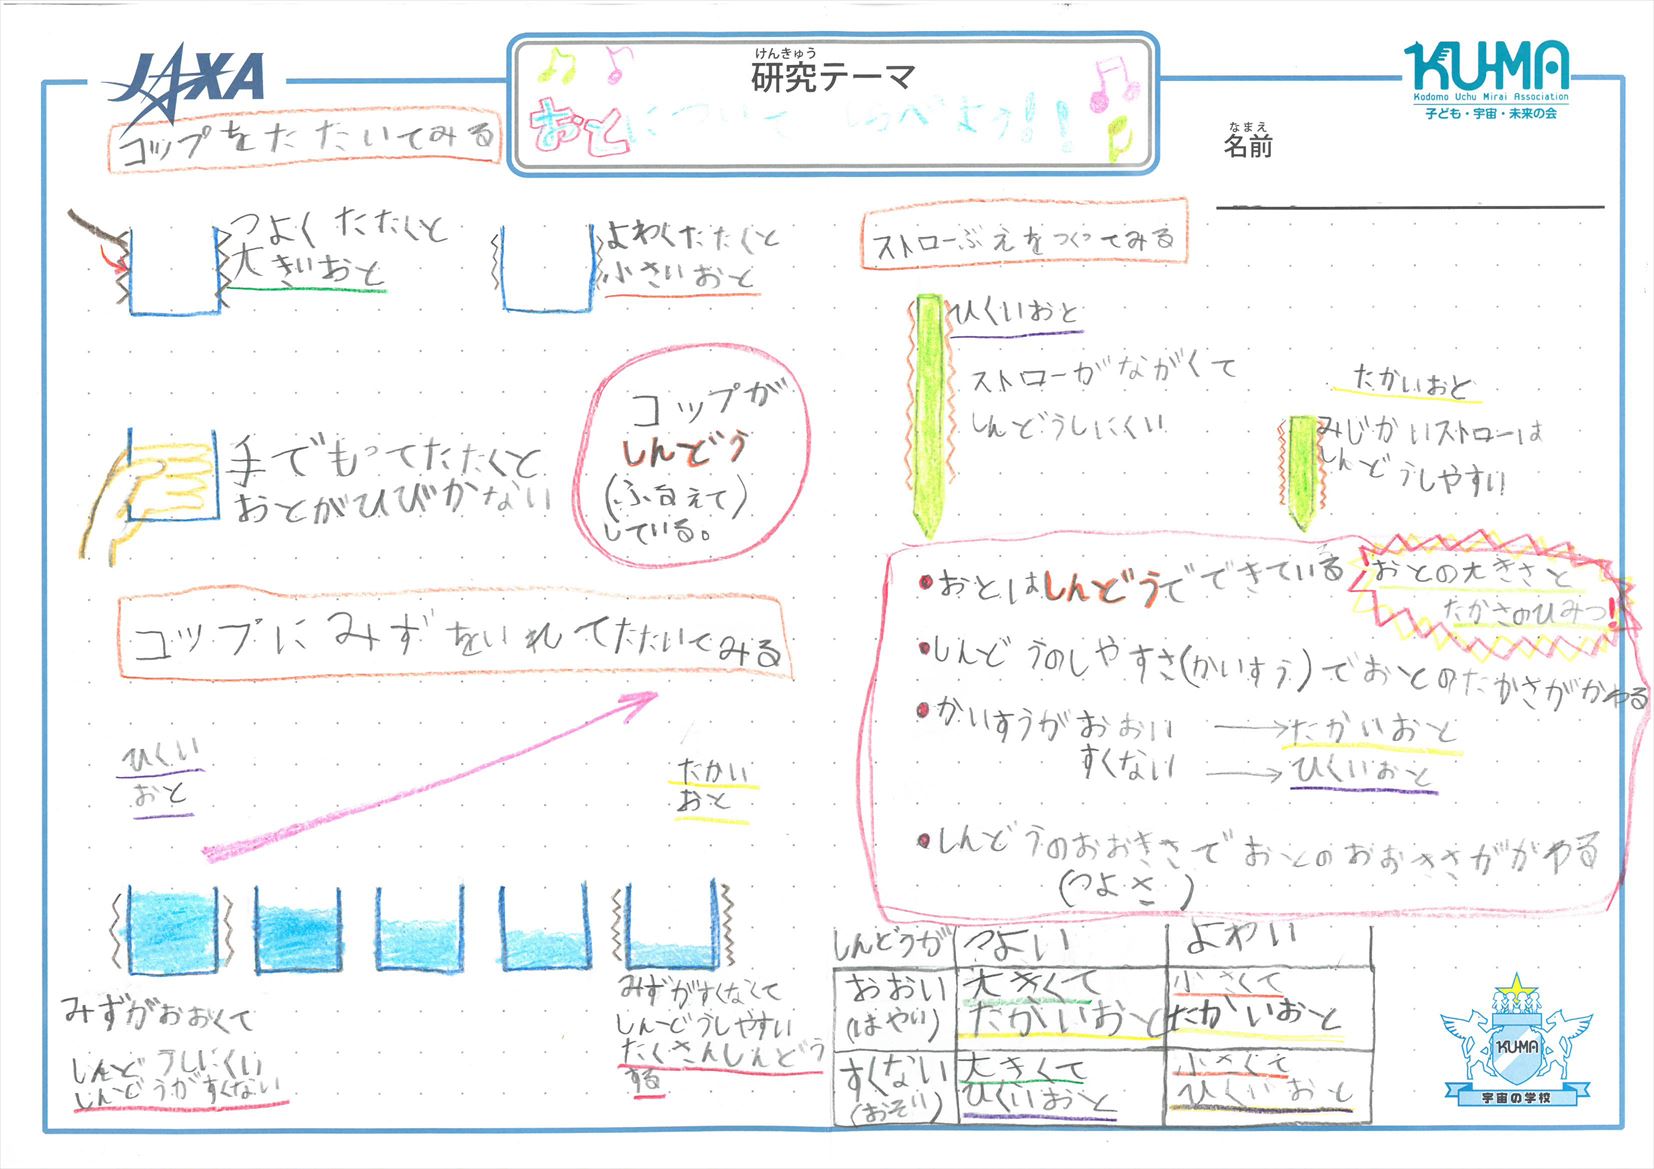 JAXA
けんきゅう
研究テーマ
おとについてしらべよう!!
KU-MA
Kodomo Uchu Mirai Association
子ども・宇宙・未来の会
なまえ
名前
コップをたたいてみる
つよくたたくと
大きいおと
よわくたたくと
小さいおと
手でもってたたくと
おとがひびかない
コップが
しんどう
(ふるえて)
している。
コップにみずをいれてたたいてみる
ひくい
おと
たかい
おと
みずがおおくて
しんどうしにくい
しんどうがすくない
みずがすくなくて
しんどうしやすい
たくさんしんどう
する
ストローぶえをつくってみる
ひくいおと
ストローがながくて
しんどうしにくい
たかいおと
みじかいストローは
しんどうしやすい
おとの大きさと
たかさのひみつ!
●おとはしんどうでできている
●しんどうのしやすさ(かいすう)でおとのたかさがかわる
●かいすうがおおい→たかいおと
すくない→ひくいおと
●しんどうのおおきさでおとのおおきさがかわる
(つよさ)
しんどうが つよい よわい
おおい 大きくて 小さくて
(はやい) たかいおと たかいおと
すくない 大きくて 小さくて
(おそい) ひくいおと ひくいおと
KU-MA
宇宙の学校